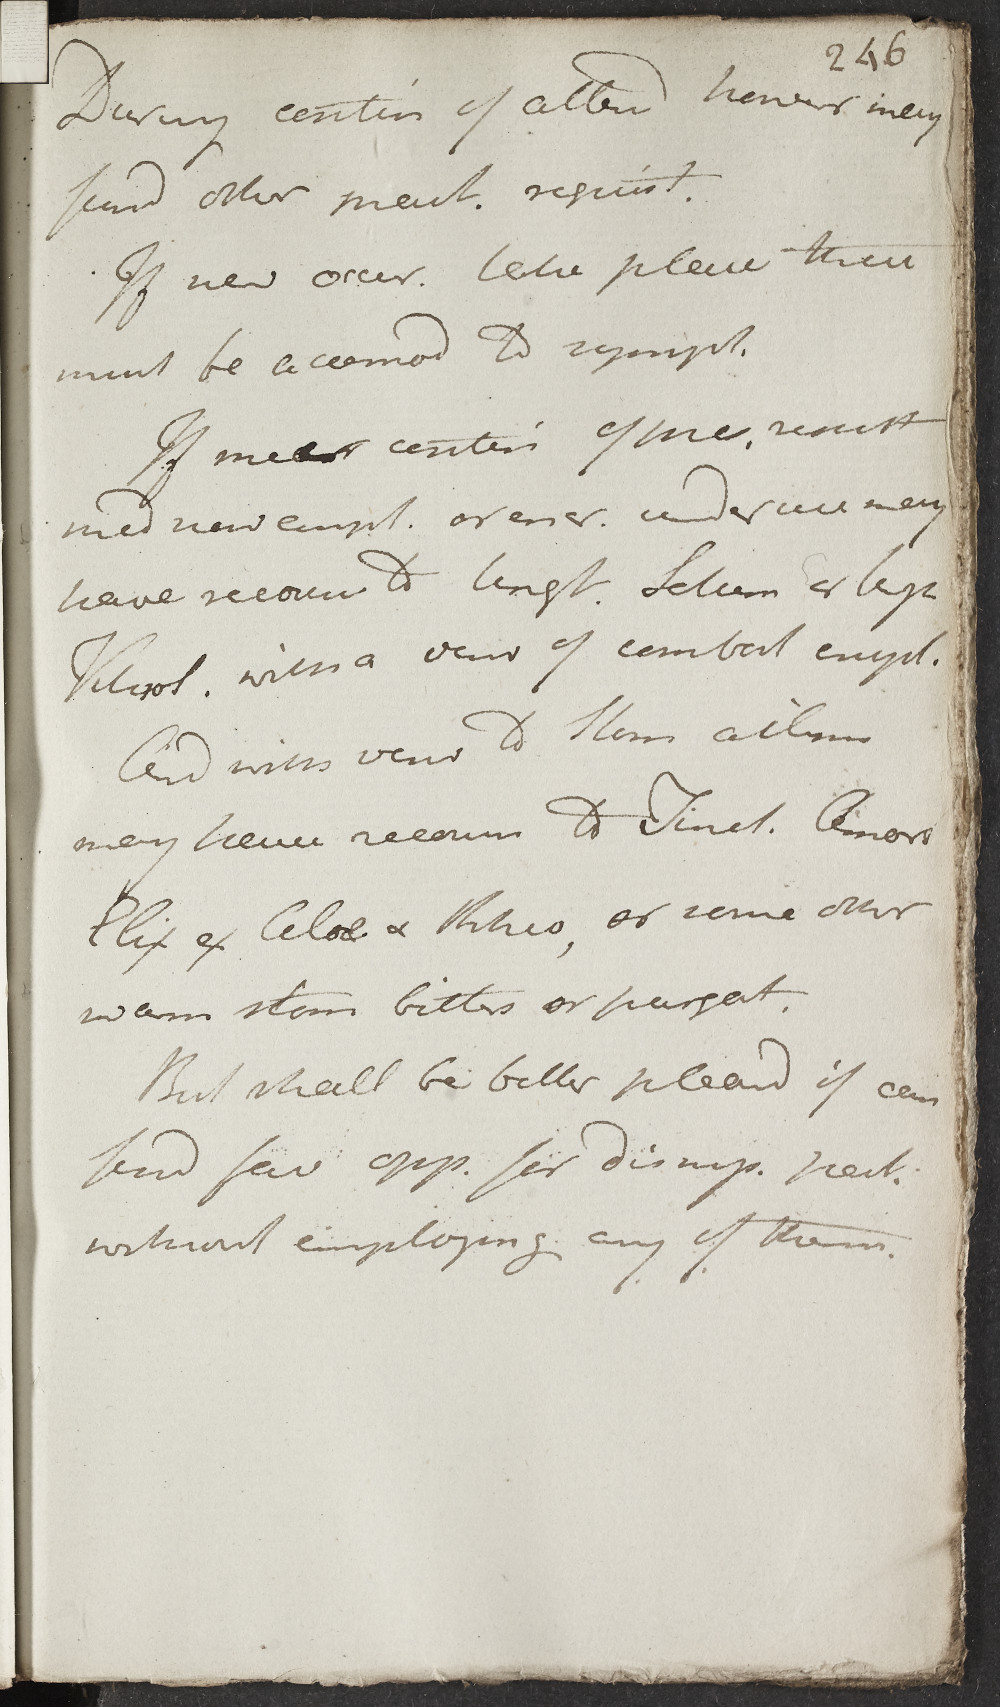 246
During contin of attend however may
find other pract. requist.
If new occur. take place these
must be accomod to sympt.
If mere contin of pre,
med now empl. or under use may
have recourse to
with a view of combat erupt.
And with view to Stom ailmn
may have recourse to Tinct. Amara
Elix ex Aloe & Rheo, or some other
warm stom bitters or purgat.
But shall be better pleasd if can
find fav opp. for dismiss. pat.
without employing any of them.